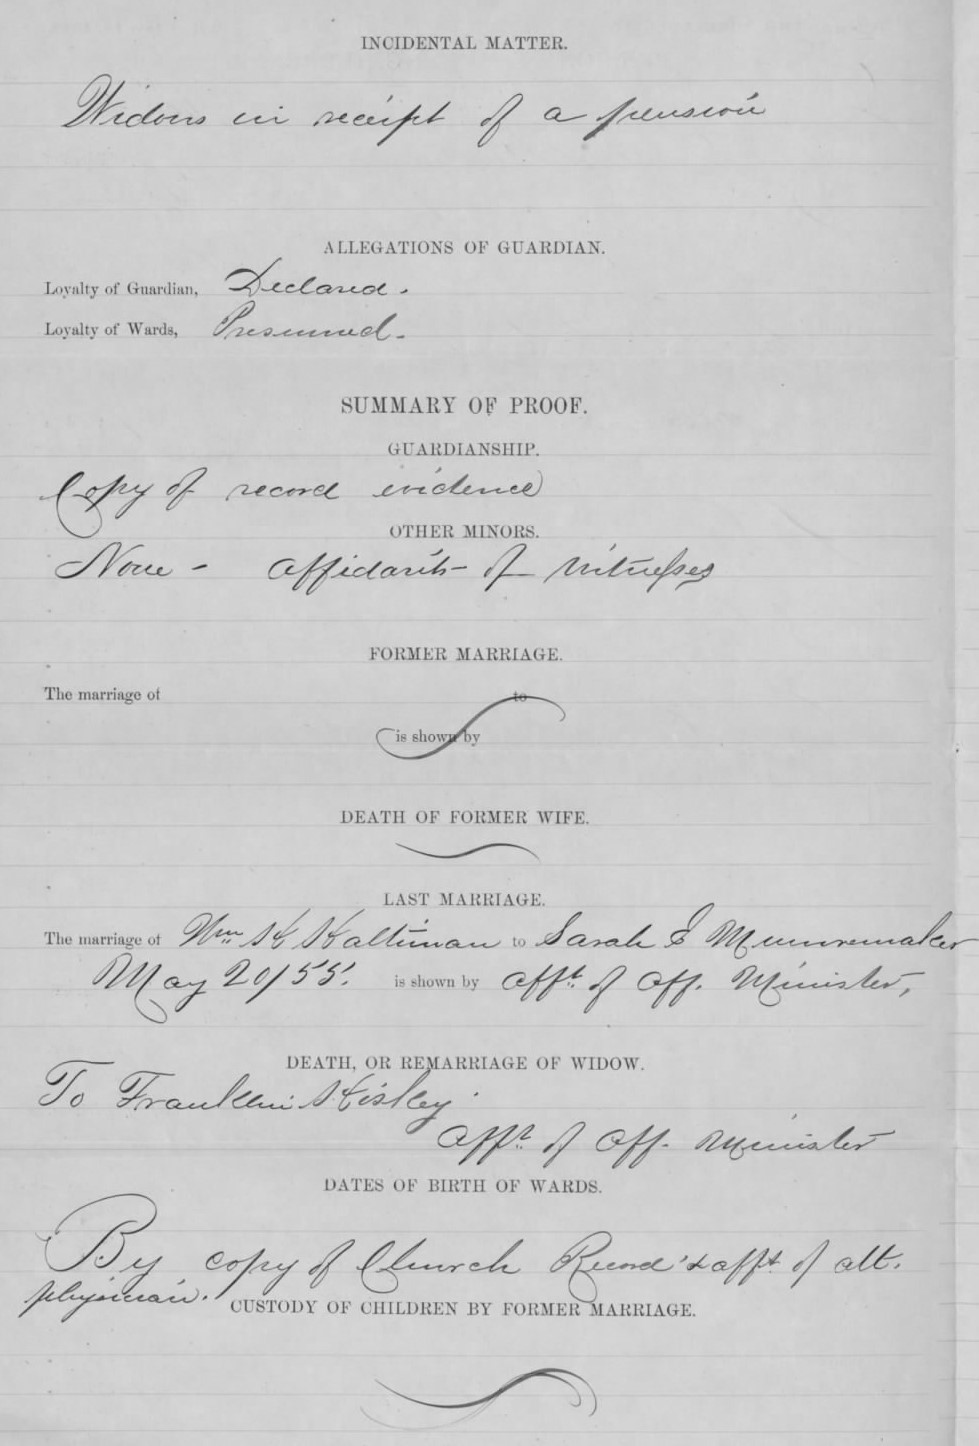 INCIDENTAL MATTER.
Widows in receipt of a pension
ALLEGATIONS OF GUARDIAN.
Loyalty of Guardian, Declared.
Loyalty of Wards, Presumed.
SUMMARY OF PROOF.
GUARDIANSHIP.
Copy of record evidence
OTHER MINORS.
None - Affidavits of Witnesses
FORMER MARRIAGE.
The marriage of to
is shown by
DEATH OF FORMER WIFE.
LAST MARRIAGE.
The marriage of Wm K Kaltriman to Sarah E Mummemaker
May 20/55. is shown by Afft. of Off. Minister,
DEATH, OR REMARRIAGE OF WIDOW.
To Franklin Kisley
Afft. of Off. Minister
DATES OF BIRTH OF WARDS.
By copy of Church Record & afft of att.
physician.
CUSTODY OF CHILDREN BY FORMER MARRIAGE.